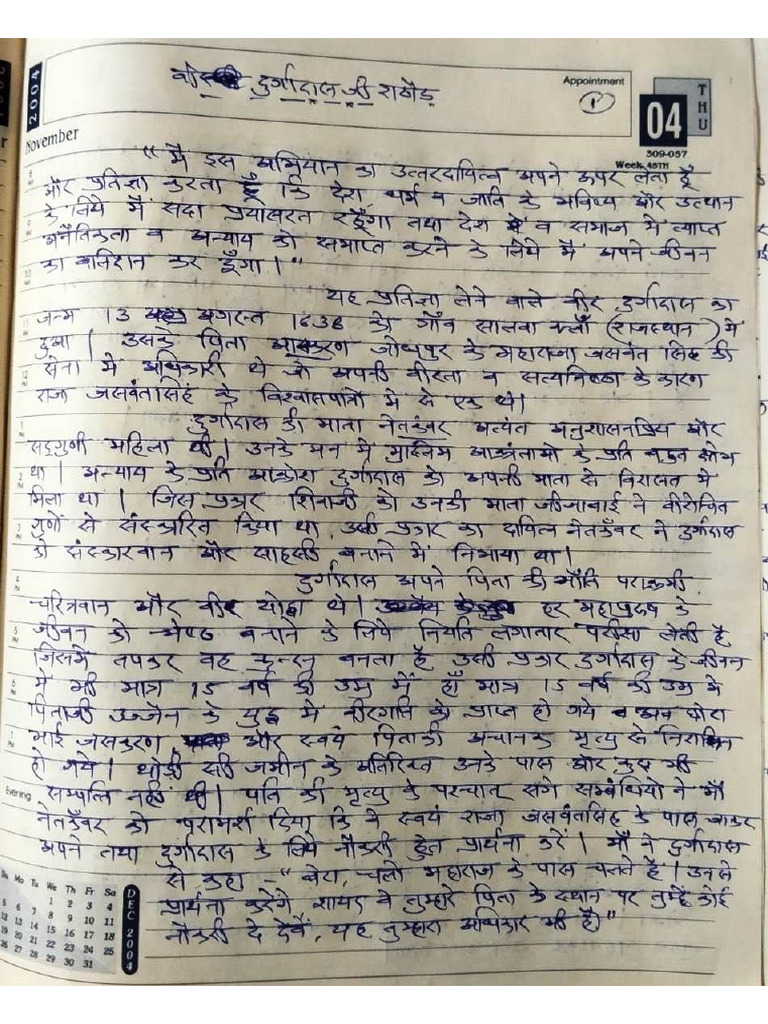 2004
November
वीर दुर्गादास जी राठौड़
Appointment
1
04
THU
309-057
Week 45TH
"मैं इस अभियान का उत्तरदायित्व अपने ऊपर लेता हूँ
और प्रतिज्ञा करता हूँ कि देश धर्म व जाति के भविष्य और उत्थान
के लिये मैं सदा प्रयासरत रहूँगा तथा देश व समाज में व्याप्त
अनैतिकता व अन्याय को समाप्त करने के लिये मैं अपने जीवन
का बलिदान कर दूँगा।"
यह प्रतिज्ञा लेने वाले वीर दुर्गादास का
जन्म 13 अगस्त 1638 को गाँव सालवा कलाँ (राजस्थान) में
हुआ। उसके पिता आसकरण जोधपुर के महाराजा जसवंत सिंह की
सेना में अधिकारी थे जो अपनी वीरता व सत्यनिष्ठा के कारण
राजा जसवंतसिंह के विश्वासपात्रों में से एक थे।
दुर्गादास की माता नेतकँवर अत्यंत अनुशासनप्रिय और
सद्गुणी महिला थी। उनके मन में मुस्लिम आक्रंताओं के प्रति बहुत क्षोभ
था। अन्याय के प्रति आक्रोश दुर्गादास को अपनी माता से विरासत में
मिला था। जिस प्रकार शिवाजी को उनकी माता जीजाबाई ने वीरोचित
गुणों से संस्कारित किया था, उसी प्रकार का दायित्व नेतकँवर ने दुर्गादास
को संस्कारवान और साहसी बनाने में निभाया था।
दुर्गादास अपने पिता की भाँति पराक्रमी,
चरित्रवान और वीर योद्धा थे। हर महापुरुष के
जीवन को श्रेष्ठ बनाने के लिये नियति लगातार परीक्षा लेती है
जिसमें तपकर वह कुन्दन बनता है उसी प्रकार दुर्गादास के जीवन
में भी मात्र 15 वर्ष की उम्र में हाँ मात्र 15 वर्ष की उम्र में
पिताजी उज्जैन के युद्ध में वीरगति को प्राप्त हो गये व अब छोटा
भाई जसकरण और स्वयं पिता की अचानक मृत्यु से निराश्रित
हो गये। थोड़ी सी जमीन के अतिरिक्त उनके पास और कुछ भी
सम्पत्ति नहीं थी। पति की मृत्यु के पश्चात् सगे सम्बंधियों ने माँ
नेतकँवर को परामर्श दिया कि वे स्वयं राजा जसवंतसिंह के पास जाकर
अपने तथा दुर्गादास के लिये नौकरी हेतु प्रार्थना करें। माँ ने दुर्गादास
से कहा - "बेटा, चलो महाराज के पास चलते हैं। उनसे
प्रार्थना करेंगे, शायद वे तुम्हारे पिता के स्थान पर तुम्हें कोई
नौकरी दे देवें, यह तुम्हारा अधिकार भी है।"
Evening
Su Mo Tu We Th Fr Sa
1 2 3 4
5 6 7 8 9 10 11
12 13 14 15 16 17 18
19 20 21 22 23 24 25
26 27 28 29 30 31
DEC 2004